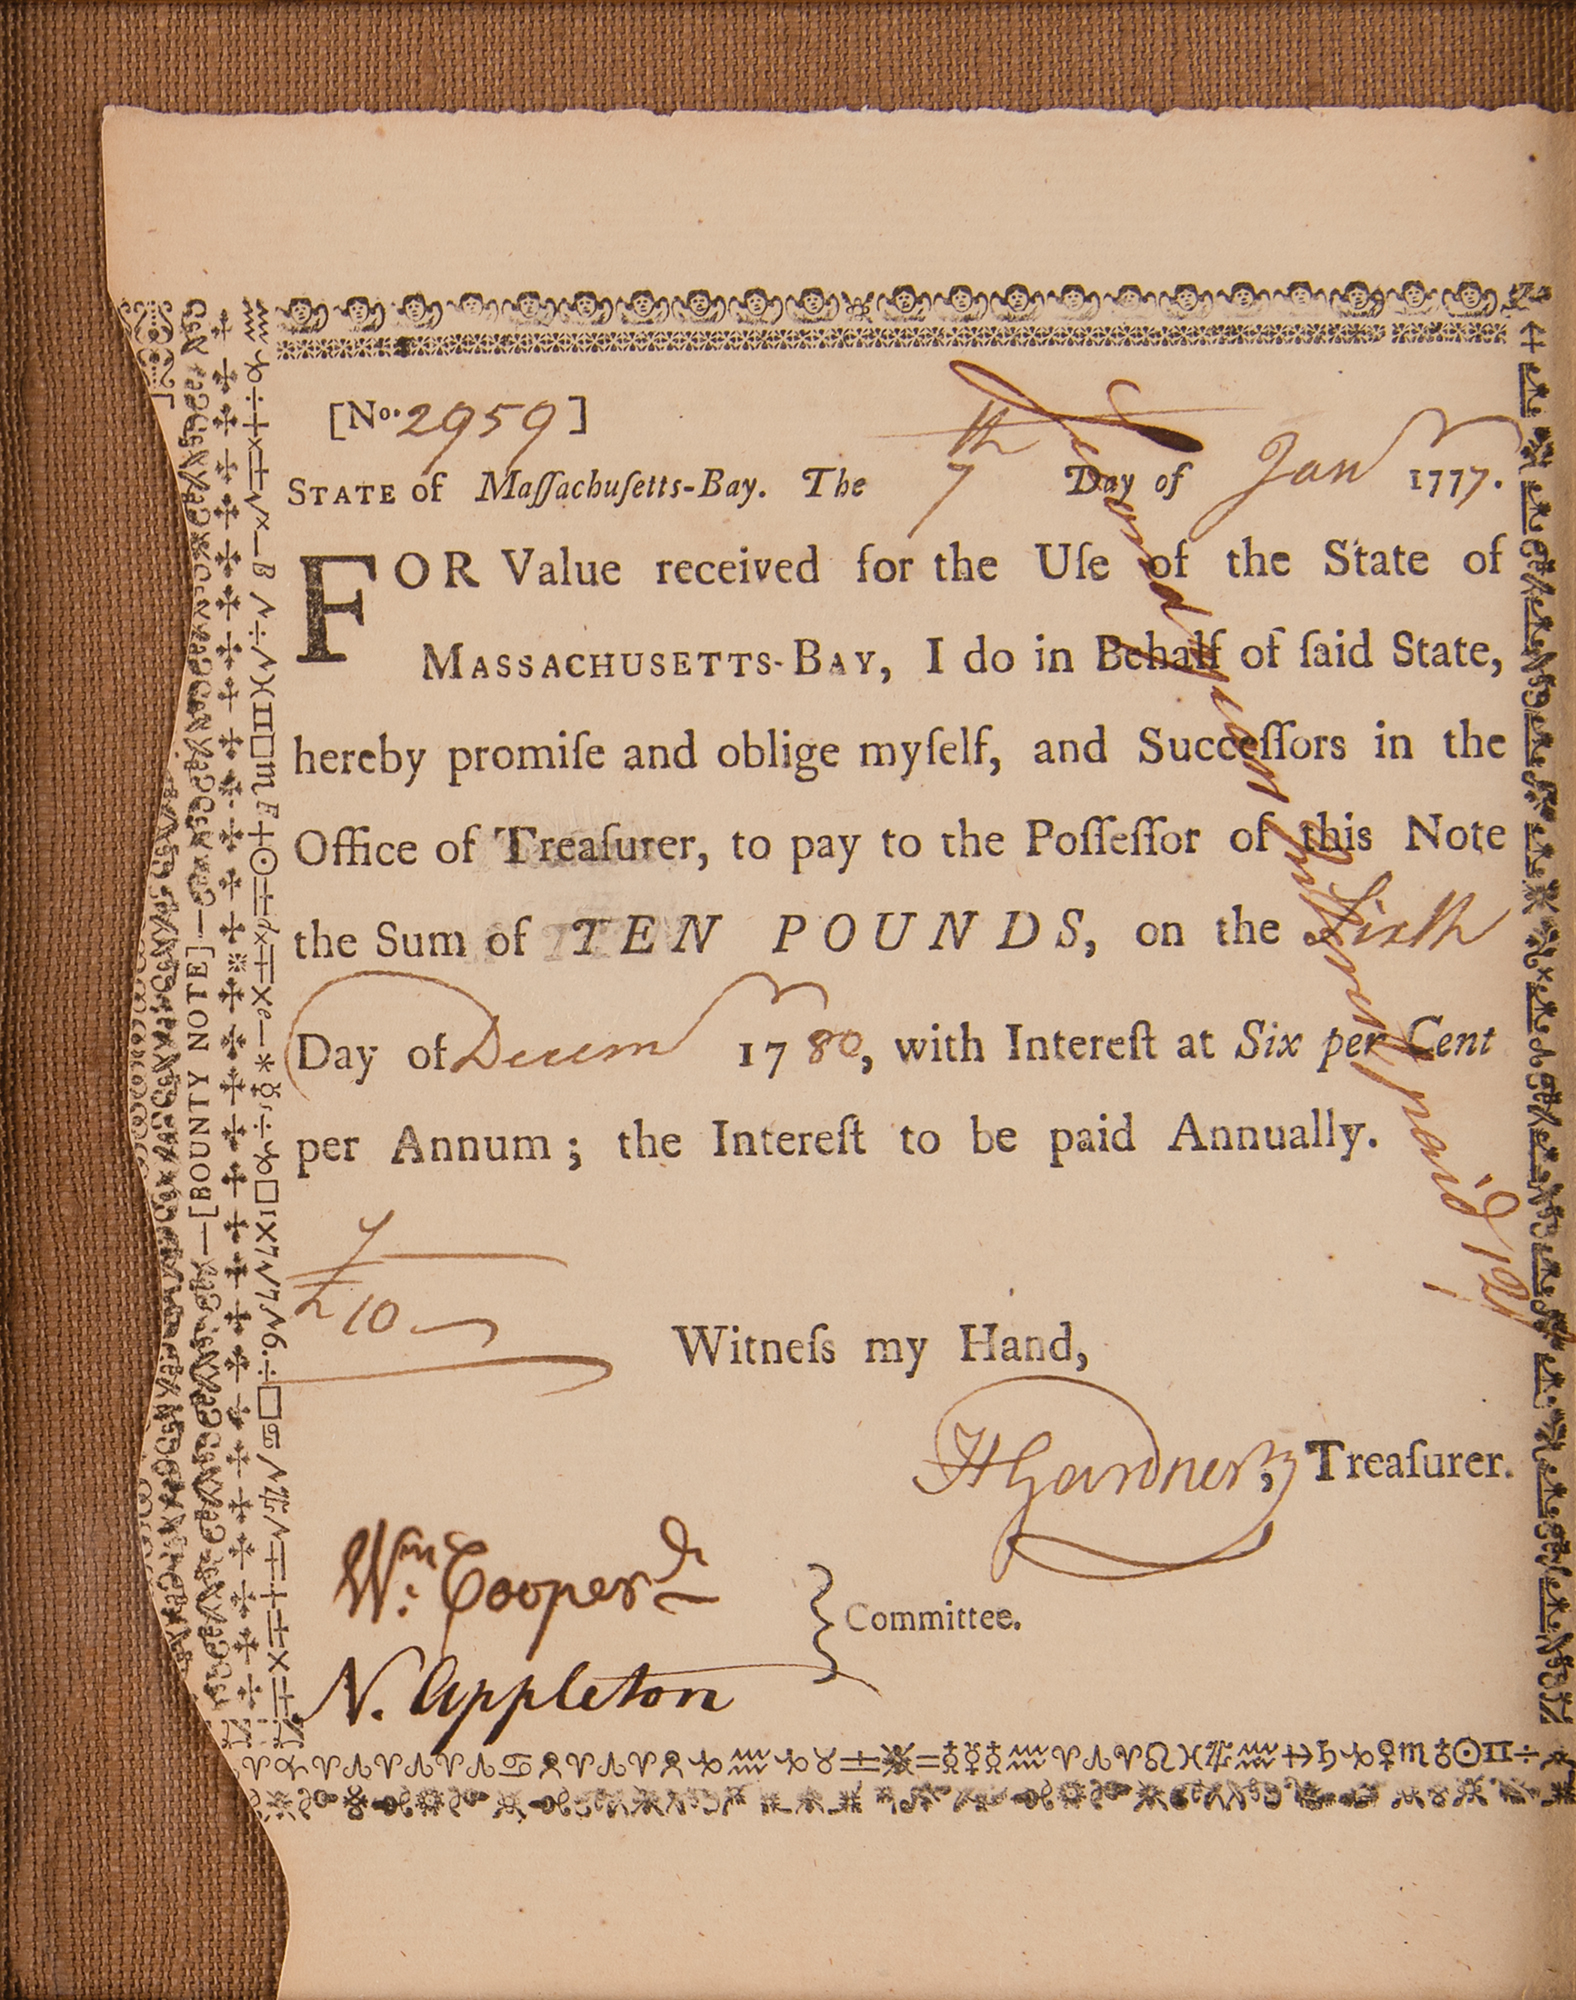 [No. 2959]
STATE of Maſſachuſetts-Bay. The 7th Day of Janr 1777.
FOR Value received for the Uſe of the State of
MASSACHUSETTS-BAY, I do in Behalf of ſaid State,
hereby promiſe and oblige myſelf, and Succeſſors in the
Office of Treaſurer, to pay to the Poſſeſſor of this Note
the Sum of TEN POUNDS, on the Sixth
Day of Decemr 1780, with Intereſt at Six per Cent
per Annum; the Intereſt to be paid Annually.
£10
Witneſs my Hand,
HGardner, Treaſurer.
Wm. Cooper
N. Appleton
Committee.
[BOUNTY NOTE]
Second years Intereſt paid